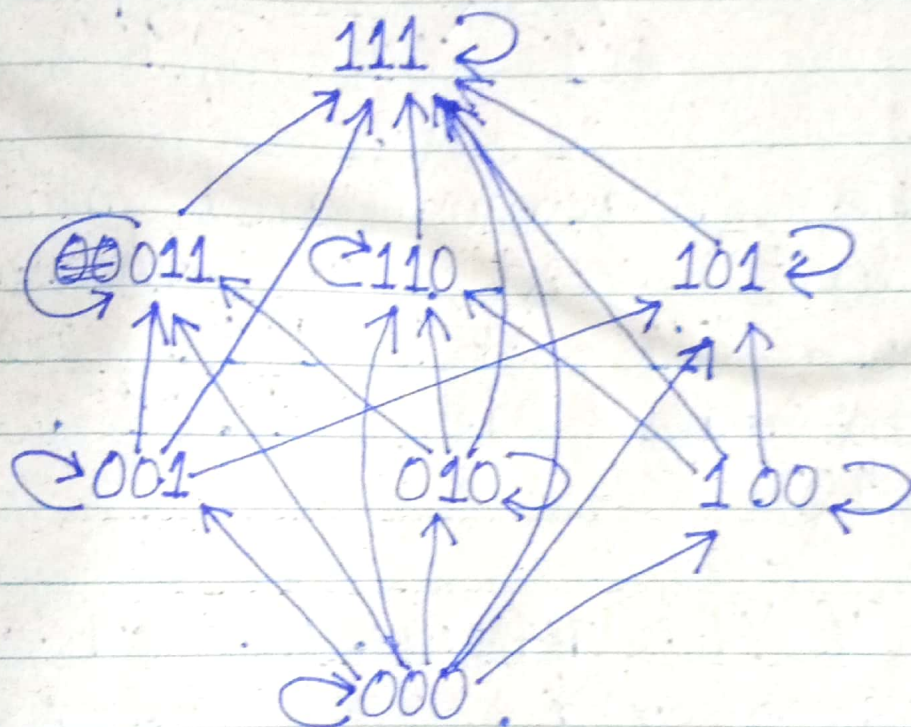 111
011 110 101
001 010 100
000